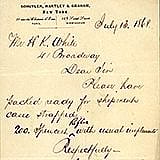 SCHUYLER, HARTLEY & GRAHAM,
NEW YORK
July 16. 1868
Mr H K White
41 Broadway
Dear Sir
Please have
packed ready for shipment
case strapped
Rifles
200. Spencer with usual implements
Respectfully